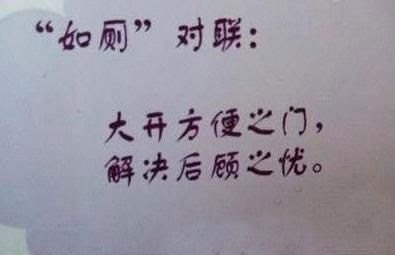 “如厕”对联：
大开方便之门，
解决后顾之忧。